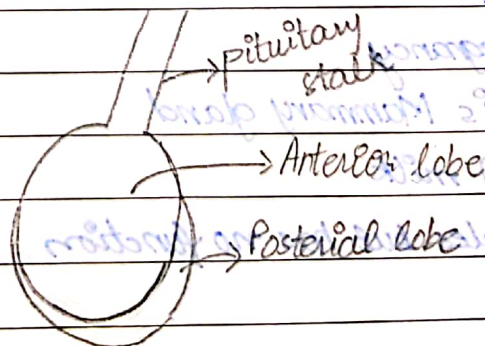 pituitary
stalk
Anterior lobe
Posterial lobe